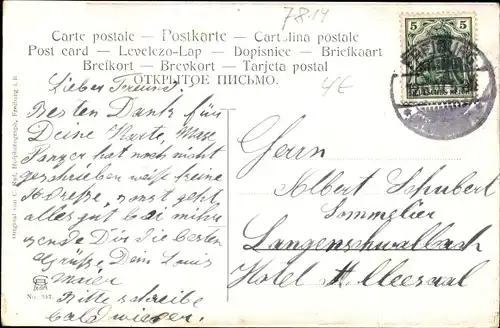 7814
Carte postale – Postkarte – Cartolina postale
Post card – Levelezo-Lap – Dopisnice – Briefkaart
Brefkort – Brevkort – Tarjeta postal
ОТКРЫТОЕ ПИСЬМО.
4€
5 5
FREIBURG
Lieber Freund.
Besten Dank für
Deine Karte, Max
Panzer hat noch nicht
geschrieben weiß keine
Adreße, sonst geht
alles gut bei mihr
sende Dir die besten
Grüße Dein Louis
Maier
Bitte schreibe
bald wieder.
Herrn
Albert Schubert
Sommelier
Langenschwalbach
Hotel Alleesaal
No. 357.
Hofphotograph, Freiburg i. B.